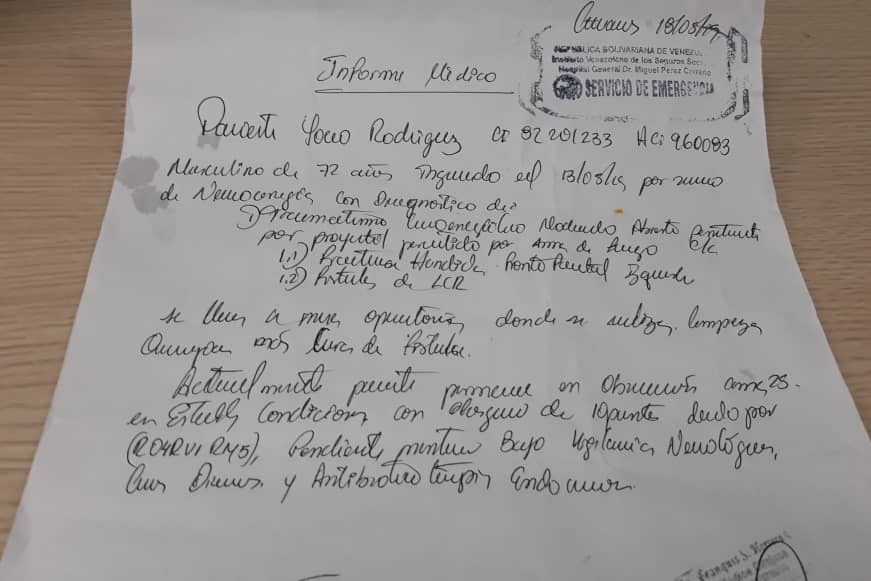 Caracas 18/05/19
REPÚBLICA BOLIVARIANA DE VENEZU
Instituto Venezolano de los Seguros Soc
Hospital General Dr. Miguel Pérez Carreño
SERVICIO DE EMERGENCIA
Informe Médico
Paciente Rodriguez CI 82201233 HC: 960083
Masculino de 72 años Ingresado el 13/05/19 por
de Neurocirugía con Diagnóstico de:
Abierto penetrante
por proyectil percutido por Arma de Fuego
1.1) Fractura Hundida Fronto Parietal Izquierda
1.2) Fístula de LCR
se lleva a mesa operatoria donde se realiza limpieza
Quirúrgica más cura de Fístula.
Actualmente paciente permanece en Observación
en Estables Condiciones con Glasgow de 10 puntos dado por
(RO4RV1RM5), Pendiente mantener Bajo Vigilancia Neurológica,
Cura Diaria y Antibiótico terapia Endovenosa.